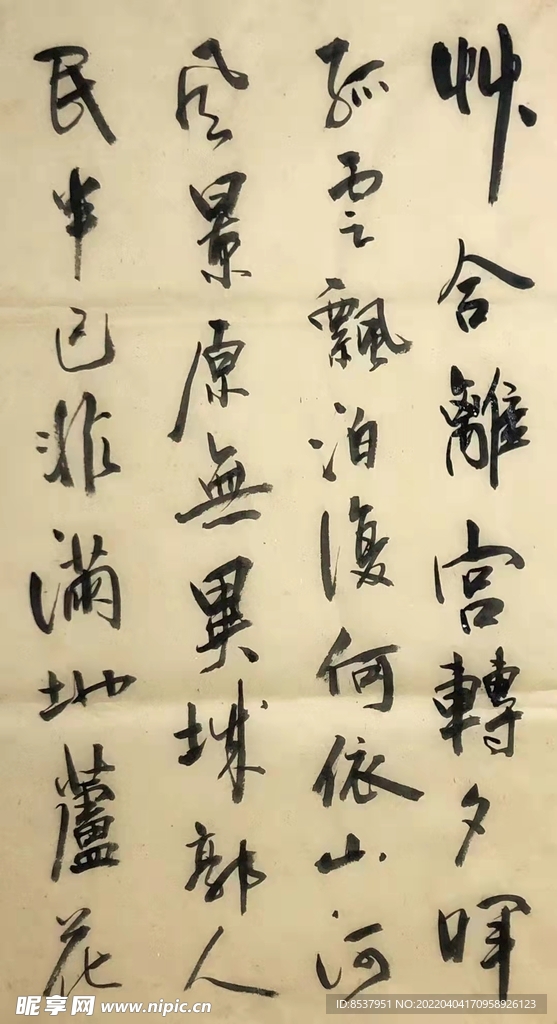 艸合離宫轉夕暉
孤雲飄泊復何依山河
風景原無異城郭人
民半已非滿地蘆花
昵享网 www.nipic.cn
ID:8537951 NO:20220404170958926123